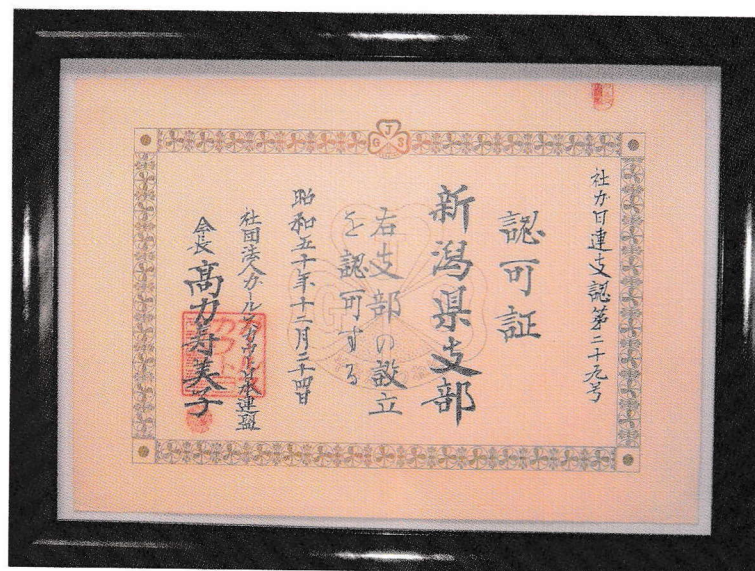 社ガ日連支認第二十九号
認可証
新潟県支部
右支部の設立
を認可する
昭和五十年十二月二十四日
社団法人ガールスカウト日本連盟
会長 高力寿美子
JGS